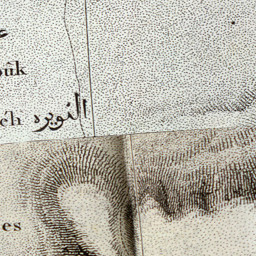 ouk
ch النويره
es